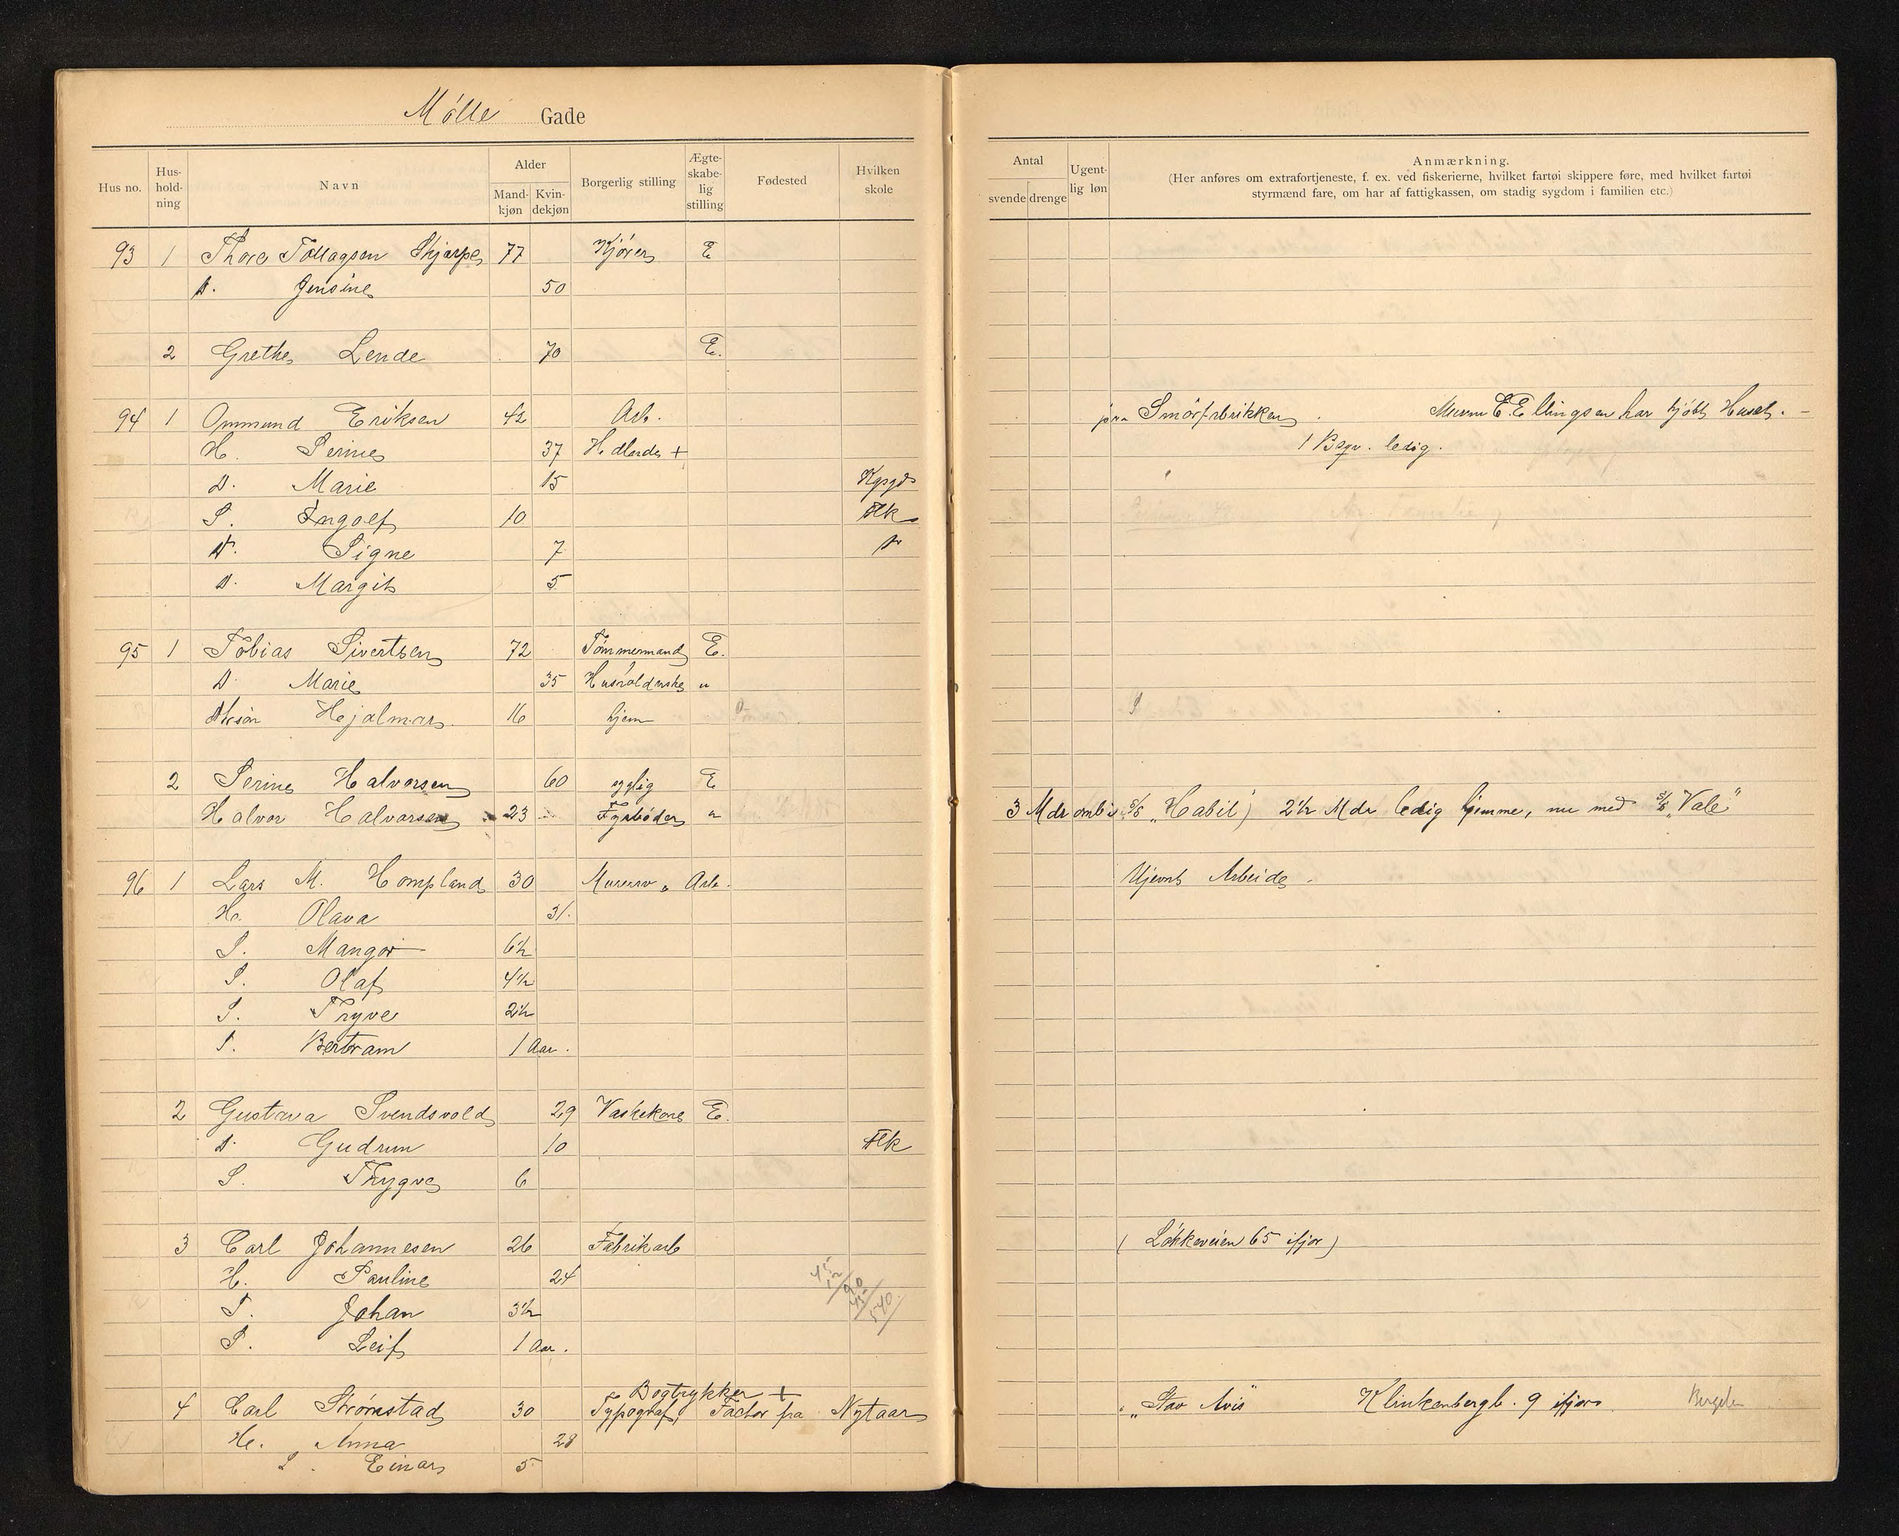 Mölle Gade
Hus no. Hus-holdning Navn Alder Mandkjøn Kvindekjøn Borgerlig stilling Ægteskabelig stilling Fødested Hvilken skole
93 1 Thore Tollagsen Skjarpe 77 Kjører E
D. Jensine 50
2 Grethe Lende 70 E.
94 1 Ommund Eriksen 42 Arb.
H. Serine 37 Hdlende +
D. Marie 15
S. Ingolf 10 Flk
D. Signe 7
D. Margit 5
95 1 Tobias Sivertsen 72 Tømmermand E.
D. Marie 35 "
Hjalmar 16 hjem
2 Serine Halvorsen 60 sygelig E
Halvor Halvorsen 23 Fyrbøder "
96 1 Lars M. Hompland 30 Murerarb.
H. Olava 31.
S. Mangor 6½
S. Olaf 4½
S. Tryve 2½
S. Bertram 1 Aar.
2 Gustava Svendsvold 29 Vaskekone E.
D. Gudrun 10 Flk
S. Thygve 6
3 Carl Johannesen 26 Fabrikarb
H. Pauline 24
S. Johan 3½
S. Leif 1 Aar.
45 12/90 45/540/
Bogtrykker +
4 Carl Strømstad 30 Typograf, Factor fra Nytaar
H. Anna 28
S. Einar 5
Antal svende drenge Ugentlig løn Anmærkning.
(Her anføres om extrafortjeneste, f. ex. ved fiskerierne, hvilket fartøi skippere føre, med hvilket fartøi
styrmænd fare, om har af fattigkassen, om stadig sygdom i familien etc.)
paa Smørfabrikken. Murm E. Ellingsen har kjøbt Huset. –
1 Bequ. ledig.
3 Mdr ombord S/S „Habil) 2½ Mdr ledig hjemme, nu med S/S „Vale"
Ujevnt Arbeide.
( Løkkeveien 65 ifjor)
i „Stav Avis" Klinkenbergb. 9 ifjor.